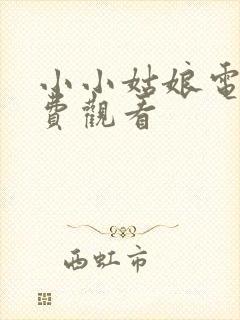 小小姑娘電
費觀看
西虹市